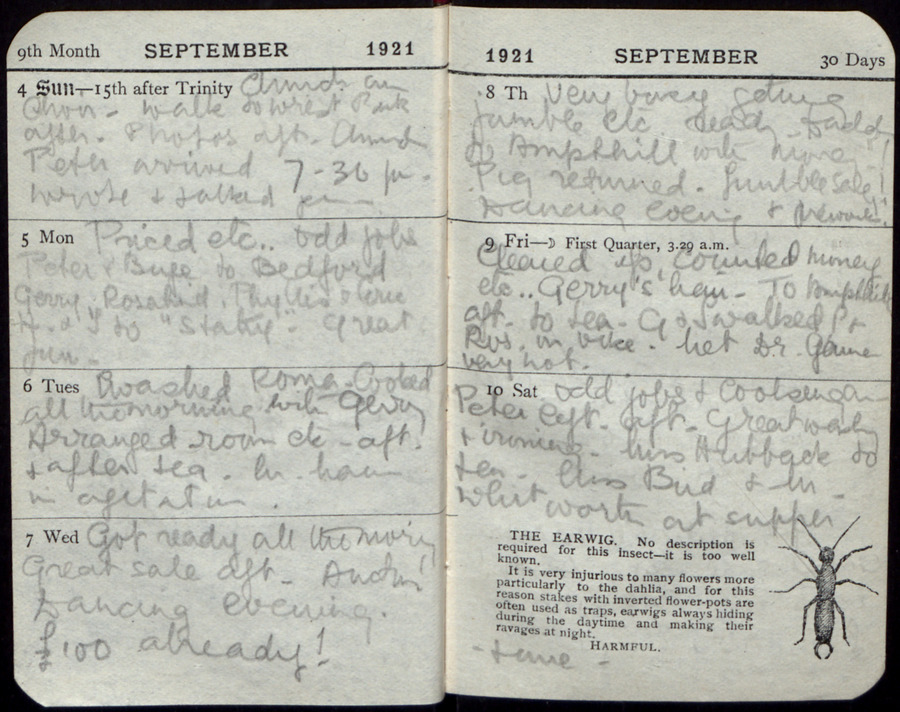 9th Month SEPTEMBER 1921
4 Sun—15th after Trinity Church an
Choir - walk to Wrest Park
after. Photos aft. Church
Peter arrived 7-30 pm.
wrote & talked
5 Mon Priced etc.. odd jobs
Peter & to Bedford
Gerry, Rosalind, Phyllis &
& I to "Stakey". Great
fun -
6 Tues washed Roma. Cooked
all the morning with Gerry
Arranged room etc - aft.
& after tea. In
in agitation.
7 Wed Got ready all the morning
Great sale aft -
Dancing evening.
£100 already!
1921 SEPTEMBER 30 Days
8 Th Very busy getting
jumble etc ready - Daddy
to Ampthill with money!
Pig returned. Jumble sale!
Dancing evening &
9 Fri—☽ First Quarter, 3.29 a.m.
Cleared up, counted money
etc.. Gerry's hair - To Ampthill
aft. to tea - G & I walked P &
Ros. in bike. Met Dr. Garner
very hot.
10 Sat odd jobs &
Peter left. aft. Great wash
& ironing. Miss Hubback to
tea - Miss Bird & Mr
Whitworth at supper
THE EARWIG. No description is
required for this insect—it is too well
known.
It is very injurious to many flowers more
particularly to the dahlia, and for this
reason stakes with inverted flower-pots are
often used as traps, earwigs always hiding
during the daytime and making their
ravages at night.
HARMFUL.